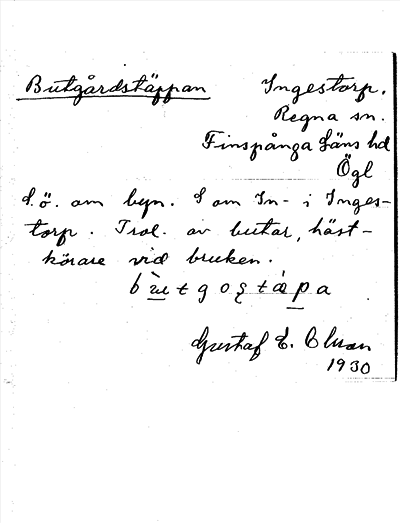 Butgårdstäppan
Ingestorp.
Regna sn.
Finspånga läns hd
Ögl
S.ö. om byn. S om In- i Inges-
torp. Trol. av butar, häst-
körare vid bruken.
Gustaf E. Clman
1930